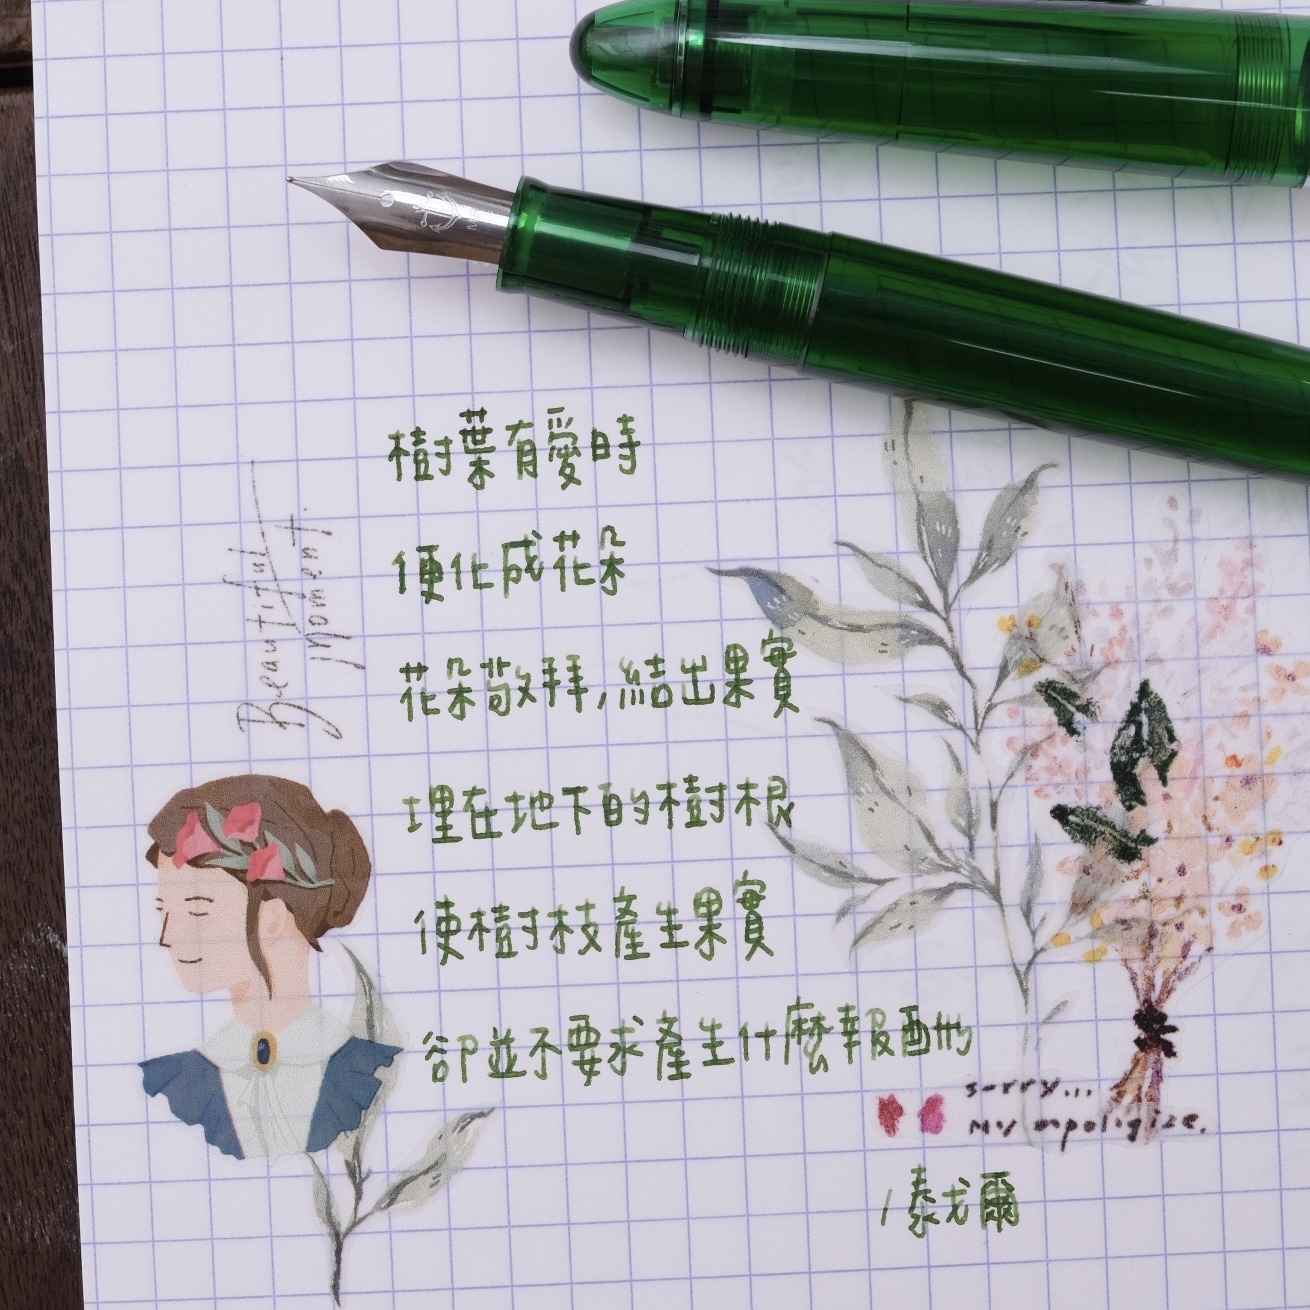 Beautiful
moment.
樹葉有愛時
便化成花朵
花朵敬拜,結出果實
埋在地下的樹根
使樹枝產生果實
卻並不要求產生什麼報酬
sorry...
my apoligize.
/泰戈爾